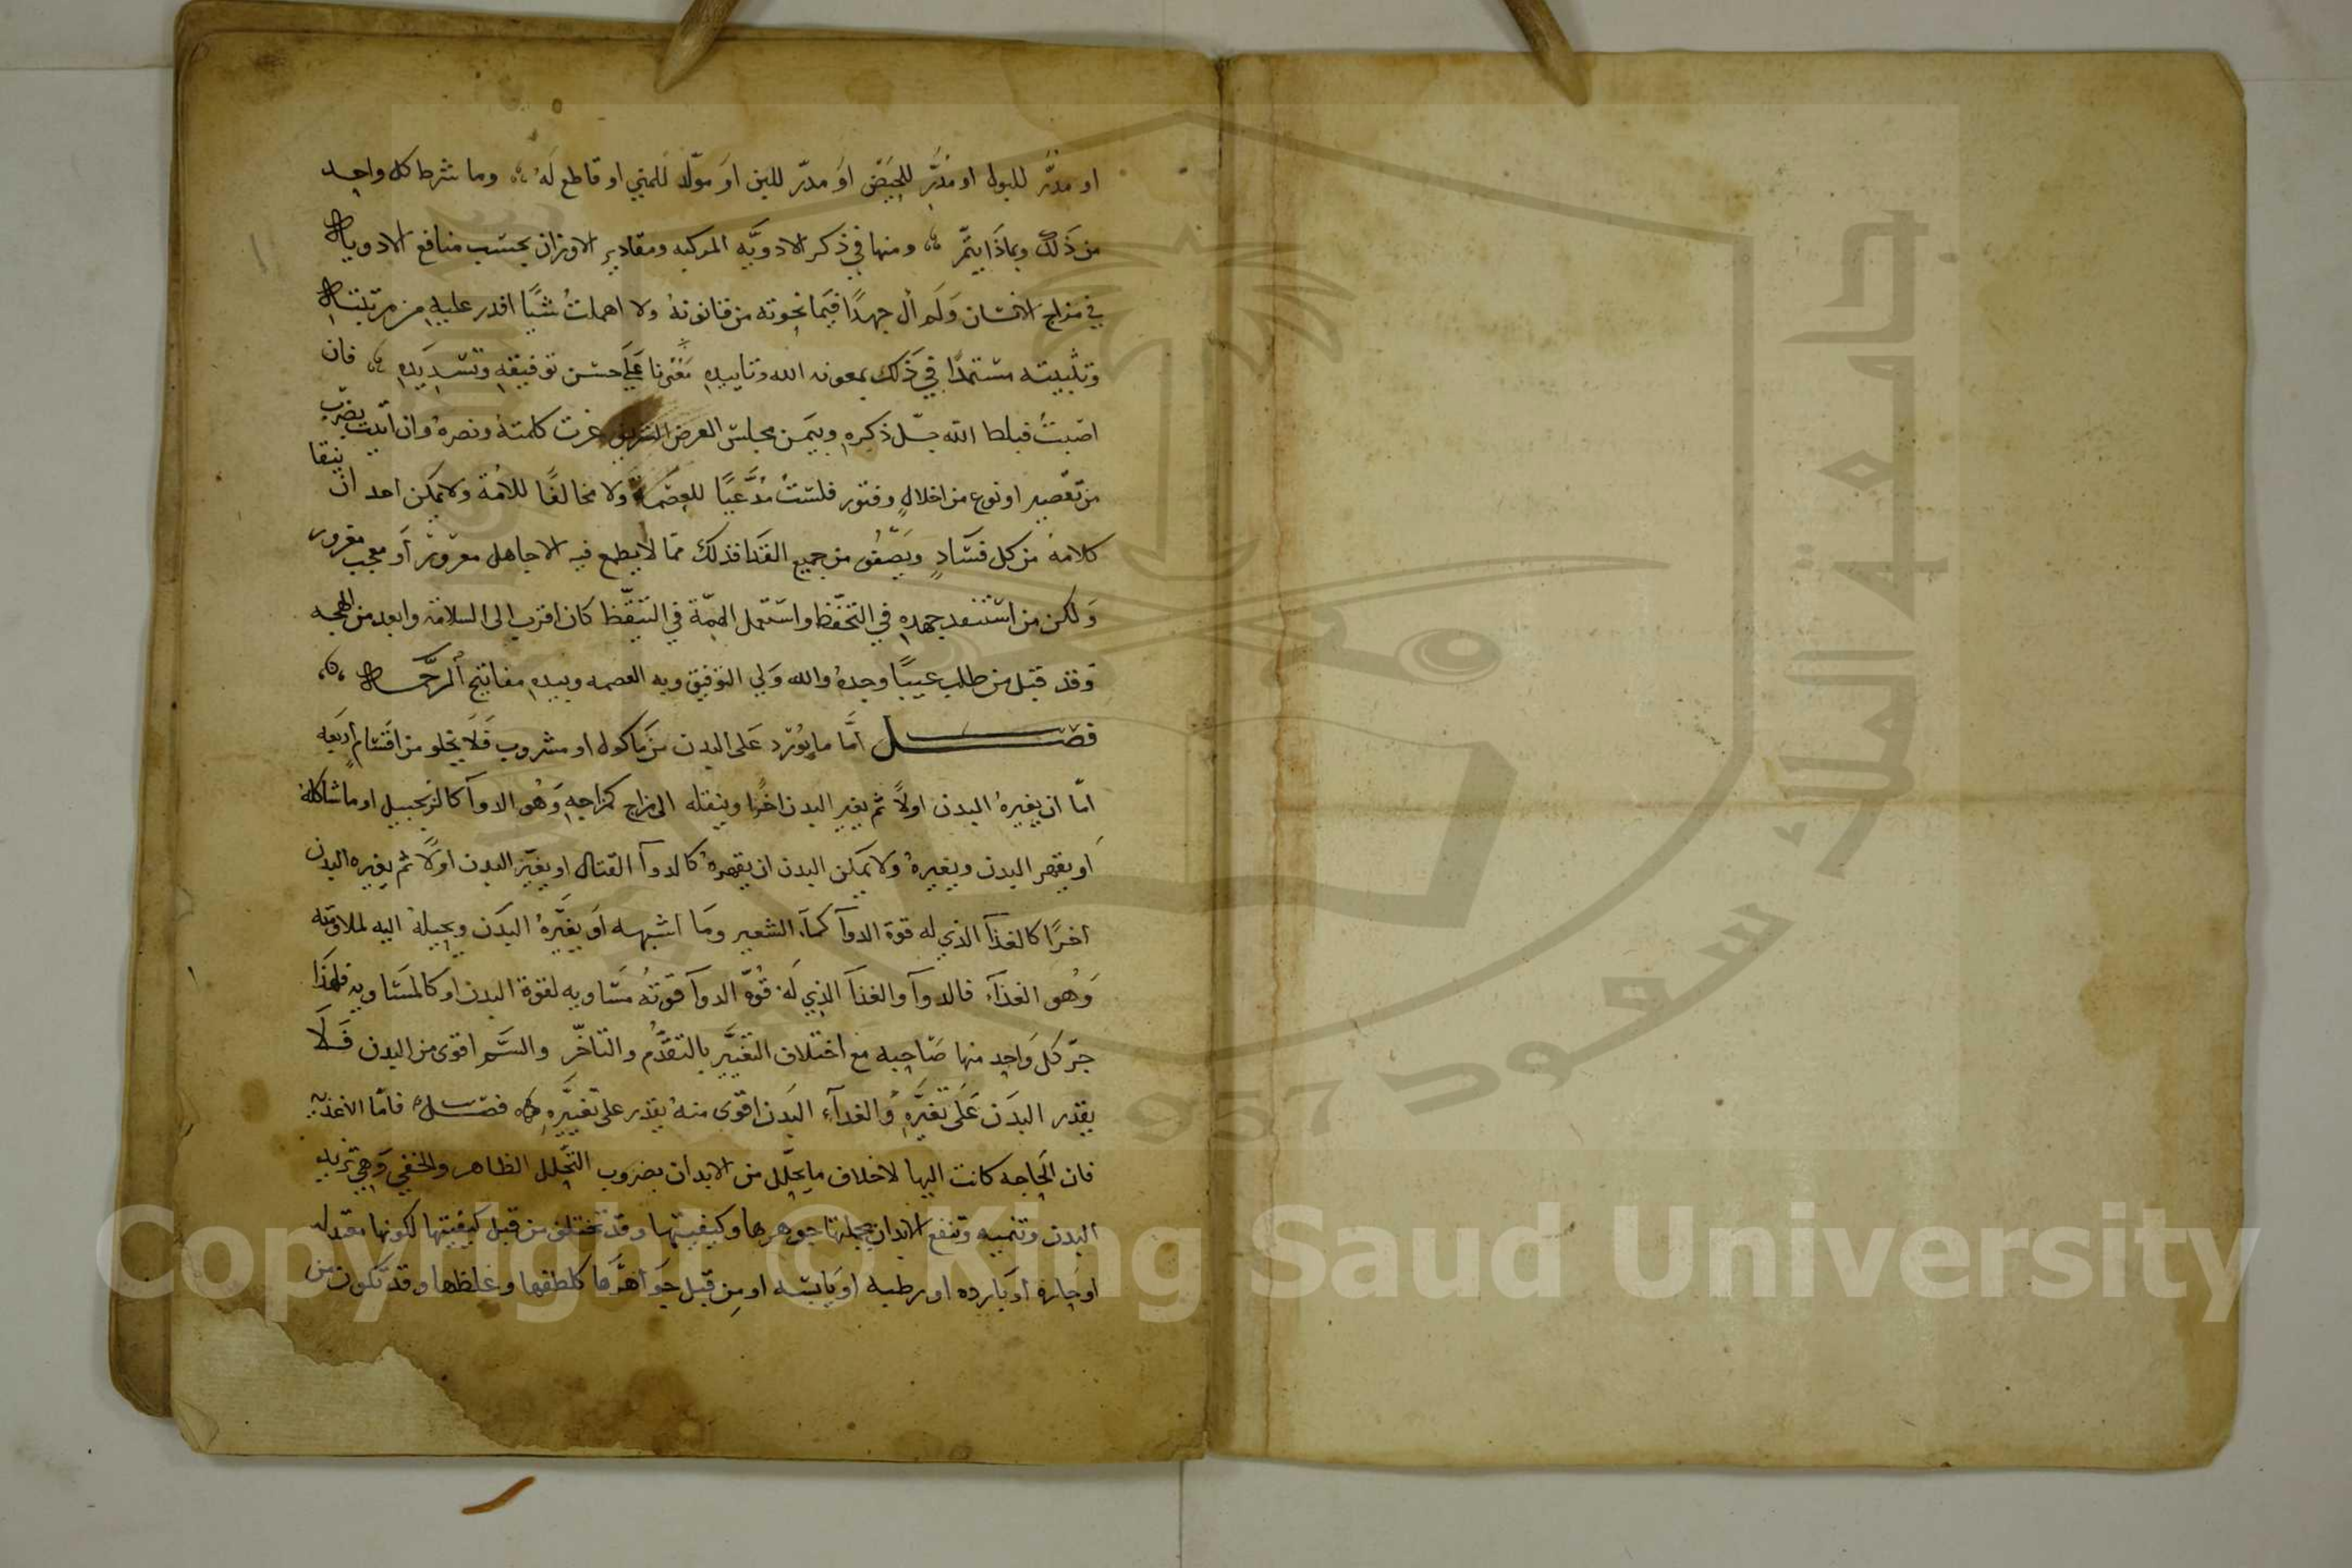 او مدرّ للبول او مُدرّ للحيض او مدرّ للبن او مولّد للمني او قاطع له وما شرط كل واحد
من ذلك وبماذا يتمّ ومنها في ذكر الادويه المركبه ومقادير الاوزان بحسب منافع الادويه
في مزاج الانسان ولم آل جهدًا فيما نحوته من قانونه ولا اهملتُ شيًا اقدر عليه من ترتيبه
وتثبيته مستمدًا في ذلك بمعونه الله وتاييده على حسن توفيقه وتسديده فان
اصبتُ الله جلّ ذكره وبيمن مجلس العرض عزت كلمتهُ ونصرهُ وان بضرب
من تقصير او نوع من اخلالٍ وفتور فلستُ مُدَّعيًا للعصمة ولا مخالفًا للامة ولا يمكن احد ان ينقا
كلامهُ من كل فسَادٍ ويصفُو من جميع القذا فذلك ممّا لا يطمع فيه الا جاهل او معجب مغرور
ولكن من استنفد جهده في التحفّظ واستعمل الهمّة في التيقّظ كان اقرب الى السلامة وابعد من
وقد قيل من طلب عيبًا وجدهُ والله ولي التوفيق وبه العصمه وبيده مفاتيح الرحمه
فصل امَّا ما يُورَد على البدن من ماكول او مشروب فلا يخلو من اقسامٍ اربعه
امّا ان يغيرهُ البدن اولاً ثم يغير البدن اخرًا وينقله الى مزاج كمزاجه وهُو الدوآ كالزنجبيل او ما شاكلهُ
او يقهر البدن ويغيرهُ ولا يمكن البدن ان يقهرهُ كالدوآ القتال او يغيّر البدن اولًا ثم يغيره البدن
اخرًا كالغذآ الذي له قوة الدوآ كمآء الشعير وما اشبهه او يغيَّرهُ البدن ويحيلهُ اليه
وهُو الغذآء فالدوآ والغذآ الذي له قُوّة الدوآ قوتهُ مسَاويه لقوة البدن او كالمسَاويه فلهذا
كلّ وَاحد منها صَاحبه مع اختلاف التغيَّر بالتقدُّم والتاخّر والسَّم اقوى من البدن فَلا
يقدر البدَن عَلى تغيّره والغدآء البدن اقوى منهُ يقدر على تغييّره فصل فامّا الاغذيه
فان الحاجه كانت اليها لاخلاف ما يحلّل من الابدان بضروب التّحلل الظاهر والخفي وهي تزيد
البدن وتنميه وتنفع الابدان بجملتها جوهرها وكيفيتها وقد تختلف من قبل كيفيتها لكونها معتدله
او حاره او بارده او رطبه او يابسه او من قبل جواهرها كلطفها وغلظها وقد تكون من
جامعة الملك سعود
1957
Copyright © King Saud University